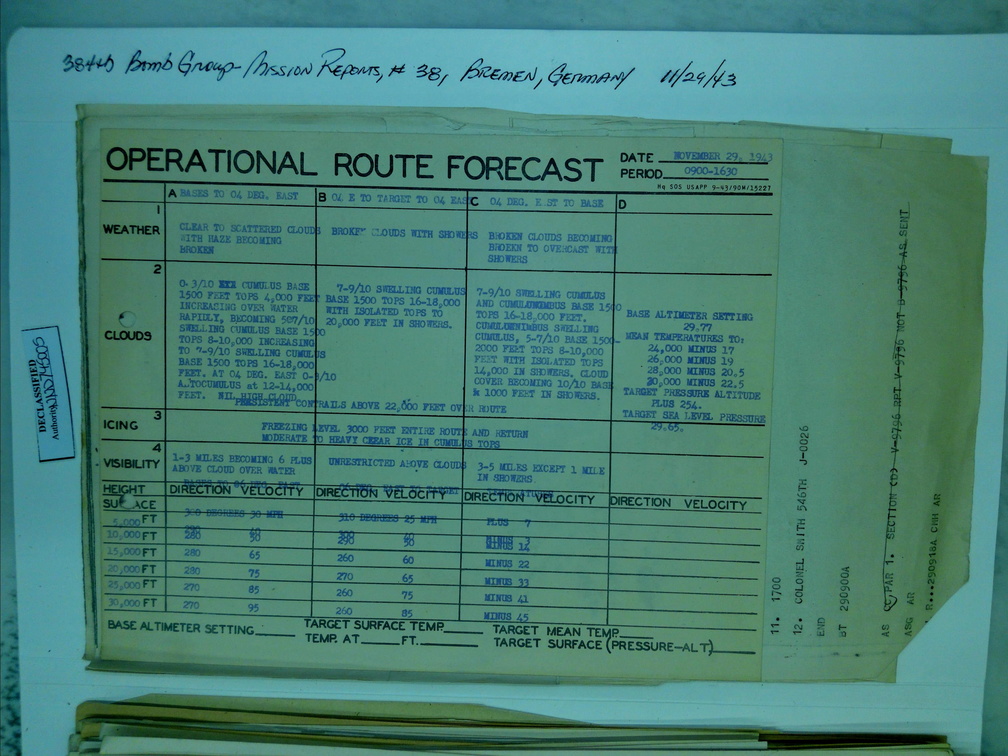 384th Bomb Group - Mission Reports, # 38, Bremen, Germany 11/29/43
OPERATIONAL ROUTE FORECAST
DATE NOVEMBER 29, 1943
PERIOD 0900-1630
Hq SOS USAPP 9-43/90M/15227
A BASES TO 04 DEG. EAST
B 04 E TO TARGET TO 04 EAST
C 04 DEG. EAST TO BASE
D
1
WEATHER
CLEAR TO SCATTERED CLOUDS
WITH HAZE BECOMING
BROKEN
BROKEN CLOUDS WITH SHOWERS
BROKEN CLOUDS BECOMING
BROEKN TO OVERCAST WITH
SHOWERS
2
CLOUDS
0-3/10 CUMULUS BASE
1500 FEET TOPS 4,000 FEET
INCREASING OVER WATER
RAPIDLY, BECOMING 507/10
SWELLING CUMULUS BASE 1500
TOPS 8-10,000 INCREASING
TO 7-9/10 SWELLING CUMULUS
BASE 1500 TOPS 16-18,000
FEET. AT 04 DEG. EAST 0-3/10
ALTOCUMULUS at 12-14,000
FEET. NIL HIGH CLOUD
7-9/10 SWELLING CUMULUS
BASE 1500 TOPS 16-18,000
WITH ISOLATED TOPS TO
20,000 FEET IN SHOWERS.
7-9/10 SWELLING CUMULUS
AND CUMULUNIMBUS BASE 1500
TOPS 16-18,000 FEET.
CUMULUNIMBUS SWELLING
CUMULUS, 5-7/10 BASE 1500-
2000 FEET TOPS 8-10,000
FEET WITH ISOLATED TOPS
14,000 IN SHOWERS. CLOUD
COVER BECOMING 10/10 BASE
& 1000 FEET IN SHOWERS.
BASE ALTIMETER SETTING
29.77
MEAN TEMPERATURES TO:
24,000 MINUS 17
26,000 MINUS 19
28,000 MINUS 20.5
30,000 MINUS 22.5
TARGET PRESSURE ALTITUDE
PLUS 254.
TARGET SEA LEVEL PRESSURE
29.65.
PERSISTENT CONTRAILS ABOVE 22,000 FEET OVER ROUTE
3
ICING
FREEZING LEVEL 3000 FEET ENTIRE ROUTE AND RETURN
MODERATE TO HEAVY CLEAR ICE IN CUMULUS TOPS
4
VISIBILITY
1-3 MILES BECOMING 6 PLUS
ABOVE CLOUD OVER WATER
UNRESTRICTED ABOVE CLOUDS
3-5 MILES EXCEPT 1 MILE
IN SHOWERS
HEIGHT DIRECTION VELOCITY DIRECTION VELOCITY DIRECTION VELOCITY DIRECTION VELOCITY
SURFACE 300 DEGREES 30 MPH 310 DEGREES 25 MPH PLUS 7
5,000 FT 290 40 300 40 MINUS 3
10,000 FT 280 50 290 50 MINUS 14
15,000 FT 280 65 260 60 MINUS 22
20,000 FT 280 75 270 65 MINUS 33
25,000 FT 270 85 260 75 MINUS 41
30,000 FT 270 95 260 85 MINUS 45
BASE ALTIMETER SETTING
TARGET SURFACE TEMP.
TEMP. AT FT.
TARGET MEAN TEMP.
TARGET SURFACE (PRESSURE-ALT)
DECLASSIFIED
Authority
11. 1700
12. COLONEL SMITH 546TH J-0026
END
BT 290900A
AS PAR 1. SECTION CDS V-9796 RPT V-9796 NOT B-9796 AS SENT
ASG AR
R...290918A CHH AR